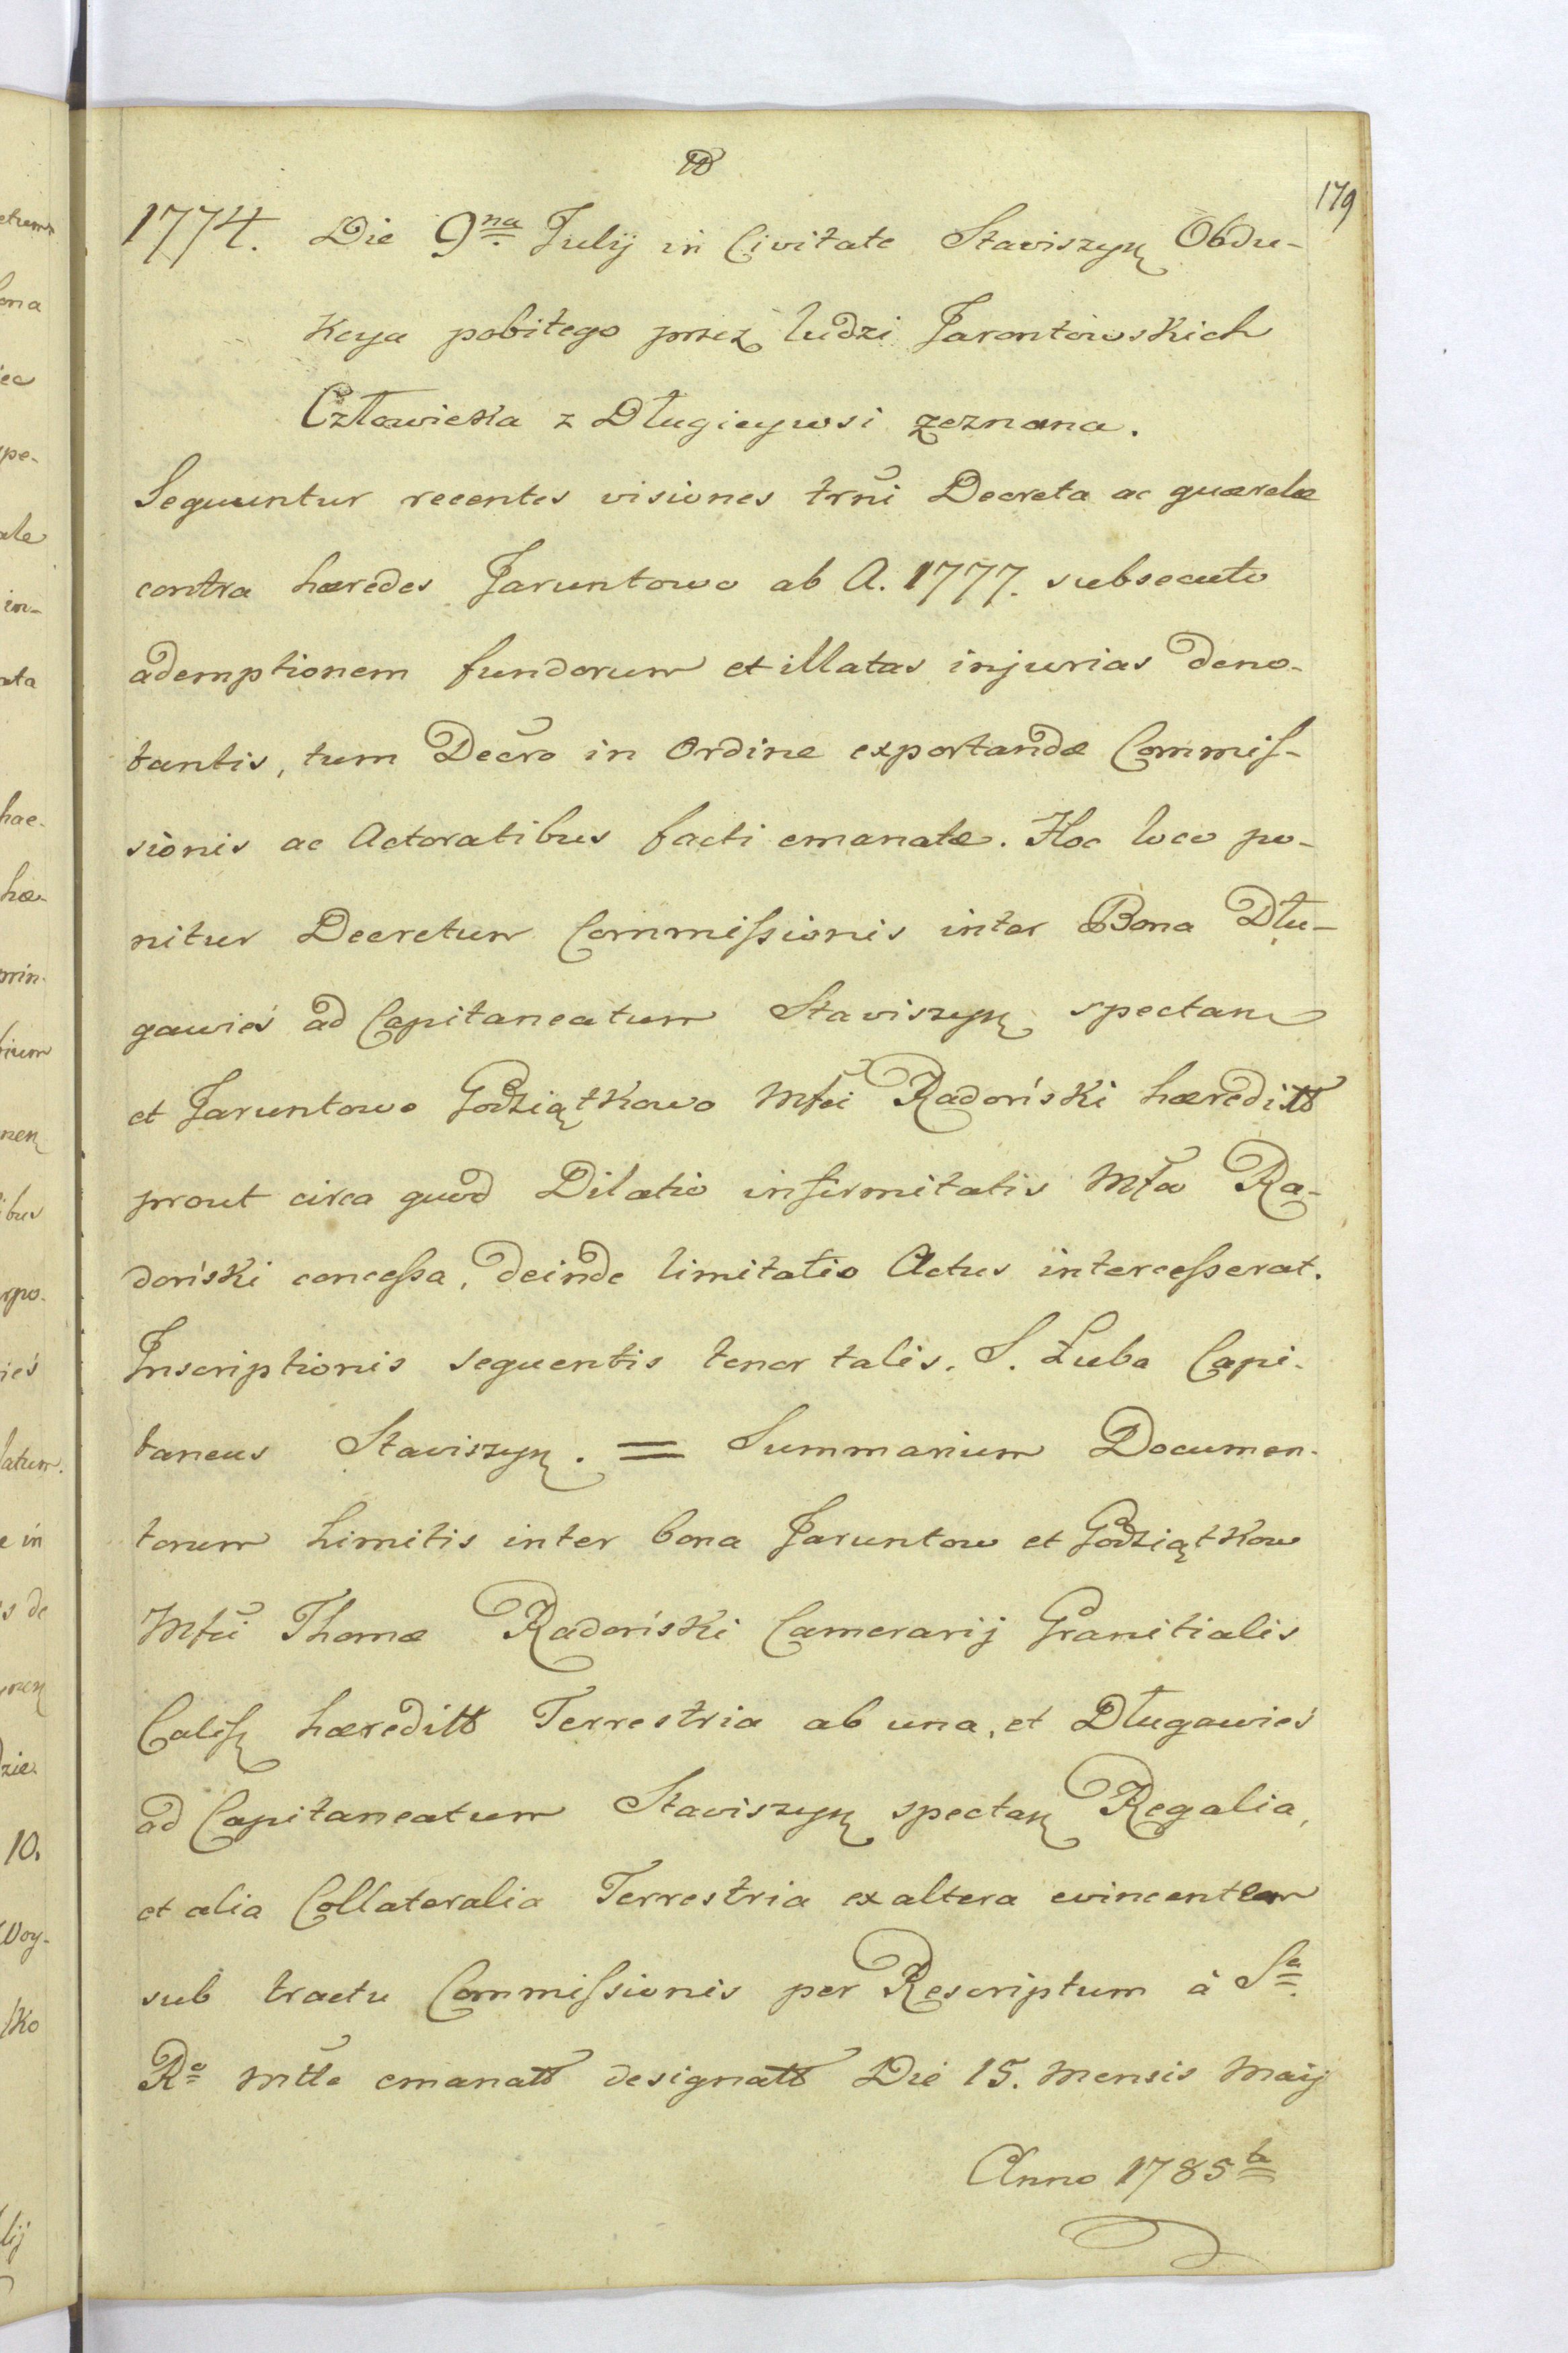 179
1774. Die 9na Julij in Civitate Staviszyn Obdu-
kcya pobitego przez ludzi Jarontowskich
Człowieka z Długieywsi zeznana.
Sequuntur recentes visiones trni Decreta ac quærelæ
contra hæredes Jaruntowo ab A. 1777. subsecuto
ademptionem fundorum et illatas injurias deno-
tantis, tum Decro in Ordine exportandæ Commis-
sionis ac Actoratibus facti emanatæ. Hoc loco po-
nitur Decretum Commissionis inter Bona Dłu-
gawieś ad Capitaneatum Staviszyn spectan
et Jaruntowo Godziątkowo Mfci Radoński hæreditt
prout circa quod Dilatio infirmitatis Mfco Ra-
doński concessa, deinde limitatio Actus intercesserat.
Inscriptionis sequentis tenor talis. S. Łuba Capi-
taneus Staviszyn. = Summarium Documen-
torum Limitis inter bona Jaruntow et Godziątkow
Mfci Thomæ Radoński Camerarij Granitialis
Calisz hæreditt Terrestria ab una, et Długawieś
ad Capitaneatum Staviszyn spectan Regalia,
et alia Collateralia Terrestria ex altera evincentium
sub tractu Commissionis per Rescriptum à Sa
Ra Mtte emanatt designatt Die 15. Mensis Maij
Anno 1785to